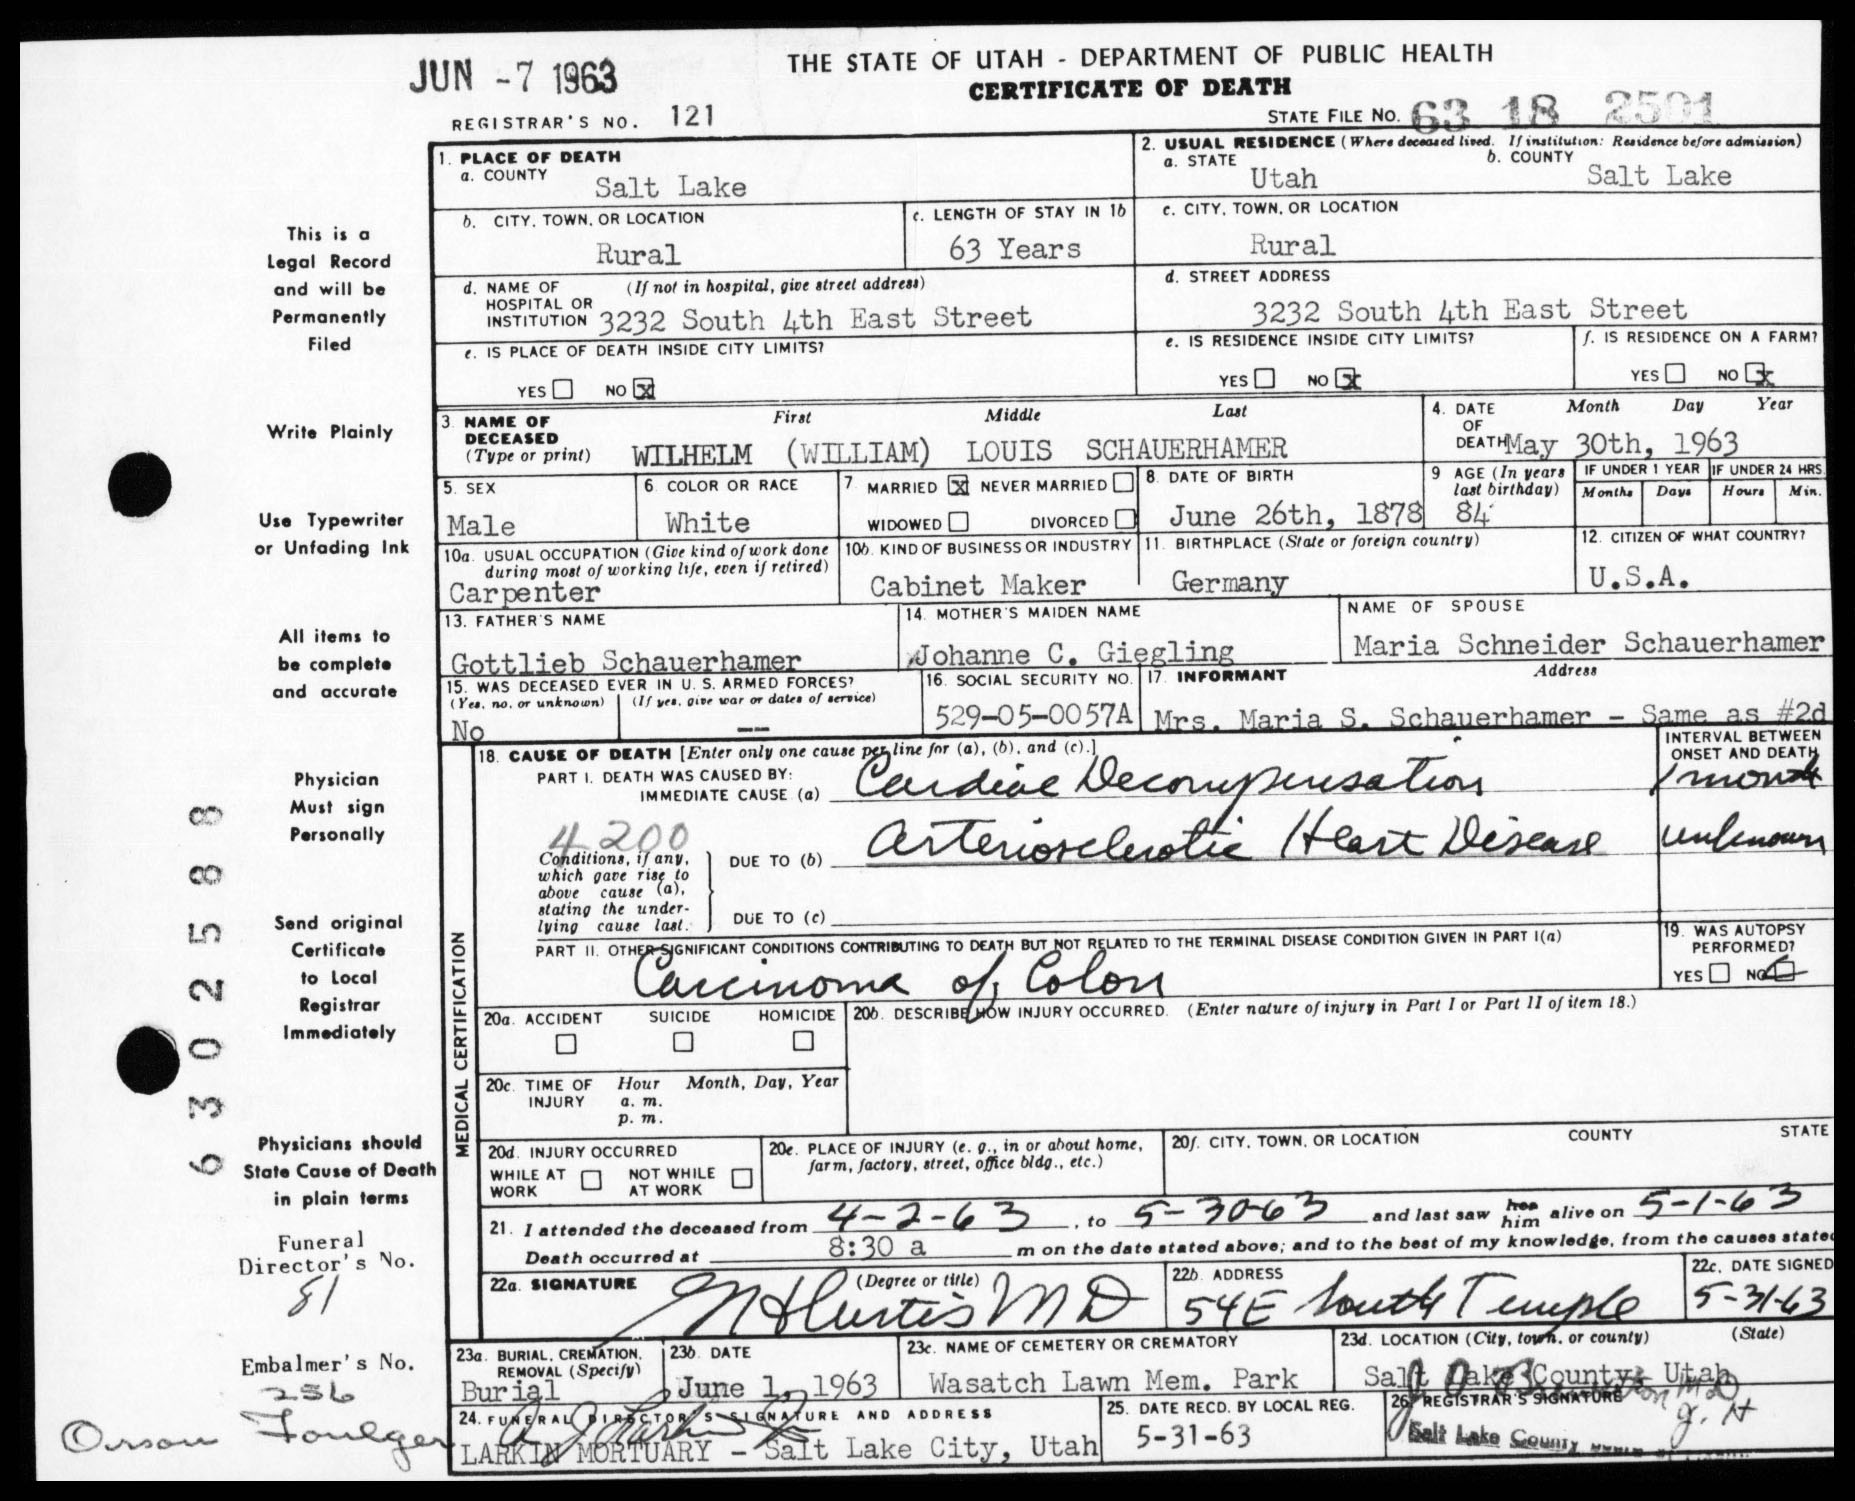 JUN -7 1963
THE STATE OF UTAH - DEPARTMENT OF PUBLIC HEALTH
CERTIFICATE OF DEATH
REGISTRAR'S NO. 121
STATE FILE NO. 63 18 2501
1. PLACE OF DEATH
a. COUNTY Salt Lake
2. USUAL RESIDENCE (Where deceased lived. If institution: Residence before admission)
a. STATE Utah
b. COUNTY Salt Lake
b. CITY, TOWN, OR LOCATION Rural
c. LENGTH OF STAY IN 1b 63 Years
c. CITY, TOWN, OR LOCATION Rural
d. NAME OF HOSPITAL OR INSTITUTION (If not in hospital, give street address) 3232 South 4th East Street
d. STREET ADDRESS 3232 South 4th East Street
e. IS PLACE OF DEATH INSIDE CITY LIMITS?
YES NO X
e. IS RESIDENCE INSIDE CITY LIMITS?
YES NO X
f. IS RESIDENCE ON A FARM?
YES NO X
3. NAME OF DECEASED (Type or print)
First Middle Last
WILHELM (WILLIAM) LOUIS SCHAUERHAMER
4. DATE OF DEATH Month Day Year
May 30th, 1963
5. SEX Male
6. COLOR OR RACE White
7. MARRIED X NEVER MARRIED
WIDOWED DIVORCED
8. DATE OF BIRTH June 26th, 1878
9 AGE (In years last birthday) 84
IF UNDER 1 YEAR Months Days
IF UNDER 24 HRS. Hours Min.
10a. USUAL OCCUPATION (Give kind of work done during most of working life, even if retired)
Carpenter
10b. KIND OF BUSINESS OR INDUSTRY
Cabinet Maker
11. BIRTHPLACE (State or foreign country)
Germany
12. CITIZEN OF WHAT COUNTRY?
U.S.A.
13. FATHER'S NAME
Gottlieb Schauerhamer
14. MOTHER'S MAIDEN NAME
Johanne C. Giegling
NAME OF SPOUSE
Maria Schneider Schauerhamer
15. WAS DECEASED EVER IN U. S. ARMED FORCES?
(Yes, no, or unknown) (If yes, give war or dates of service)
No --
16. SOCIAL SECURITY NO.
529-05-0057A
17. INFORMANT Address
Mrs. Maria S. Schauerhamer - Same as #2d
MEDICAL CERTIFICATION
18. CAUSE OF DEATH [Enter only one cause per line for (a), (b), and (c).]
INTERVAL BETWEEN ONSET AND DEATH
PART I. DEATH WAS CAUSED BY:
IMMEDIATE CAUSE (a) Cardiac Decompensation 1 month
4200
Conditions, if any, which gave rise to above cause (a), stating the underlying cause last.
DUE TO (b) Arteriosclerotic Heart Disease unknown
DUE TO (c)
PART II. OTHER SIGNIFICANT CONDITIONS CONTRIBUTING TO DEATH BUT NOT RELATED TO THE TERMINAL DISEASE CONDITION GIVEN IN PART I(a)
Carcinoma of Colon
19. WAS AUTOPSY PERFORMED?
YES NO
20a. ACCIDENT SUICIDE HOMICIDE
20b. DESCRIBE HOW INJURY OCCURRED. (Enter nature of injury in Part I or Part II of item 18.)
20c. TIME OF INJURY Hour Month, Day, Year
a. m.
p. m.
20d. INJURY OCCURRED
WHILE AT WORK NOT WHILE AT WORK
20e. PLACE OF INJURY (e. g., in or about home, farm, factory, street, office bldg., etc.)
20f. CITY, TOWN, OR LOCATION COUNTY STATE
21. I attended the deceased from 4-2-63, to 5-30-63 and last saw her him alive on 5-1-63
Death occurred at 8:30 a m on the date stated above; and to the best of my knowledge, from the causes stated
22a. SIGNATURE (Degree or title)
Curtis MD
22b. ADDRESS
54 E South Temple
22c. DATE SIGNED
5-31-63
23a. BURIAL, CREMATION, REMOVAL (Specify)
Burial
23b. DATE
June 1, 1963
23c. NAME OF CEMETERY OR CREMATORY
Wasatch Lawn Mem. Park
23d. LOCATION (City, town, or county) (State)
Salt Lake County, Utah
24. FUNERAL DIRECTOR'S SIGNATURE AND ADDRESS
LARKIN MORTUARY - Salt Lake City, Utah
25. DATE RECD. BY LOCAL REG.
5-31-63
26. REGISTRAR'S SIGNATURE
Salt Lake County
This is a
Legal Record
and will be
Permanently
Filed
Write Plainly
Use Typewriter
or Unfading Ink
All items to
be complete
and accurate
Physician
Must sign
Personally
Send original
Certificate
to Local
Registrar
Immediately
Physicians should
State Cause of Death
in plain terms
Funeral
Director's No.
81
Embalmer's No.
256
Orson Foulger
6302588